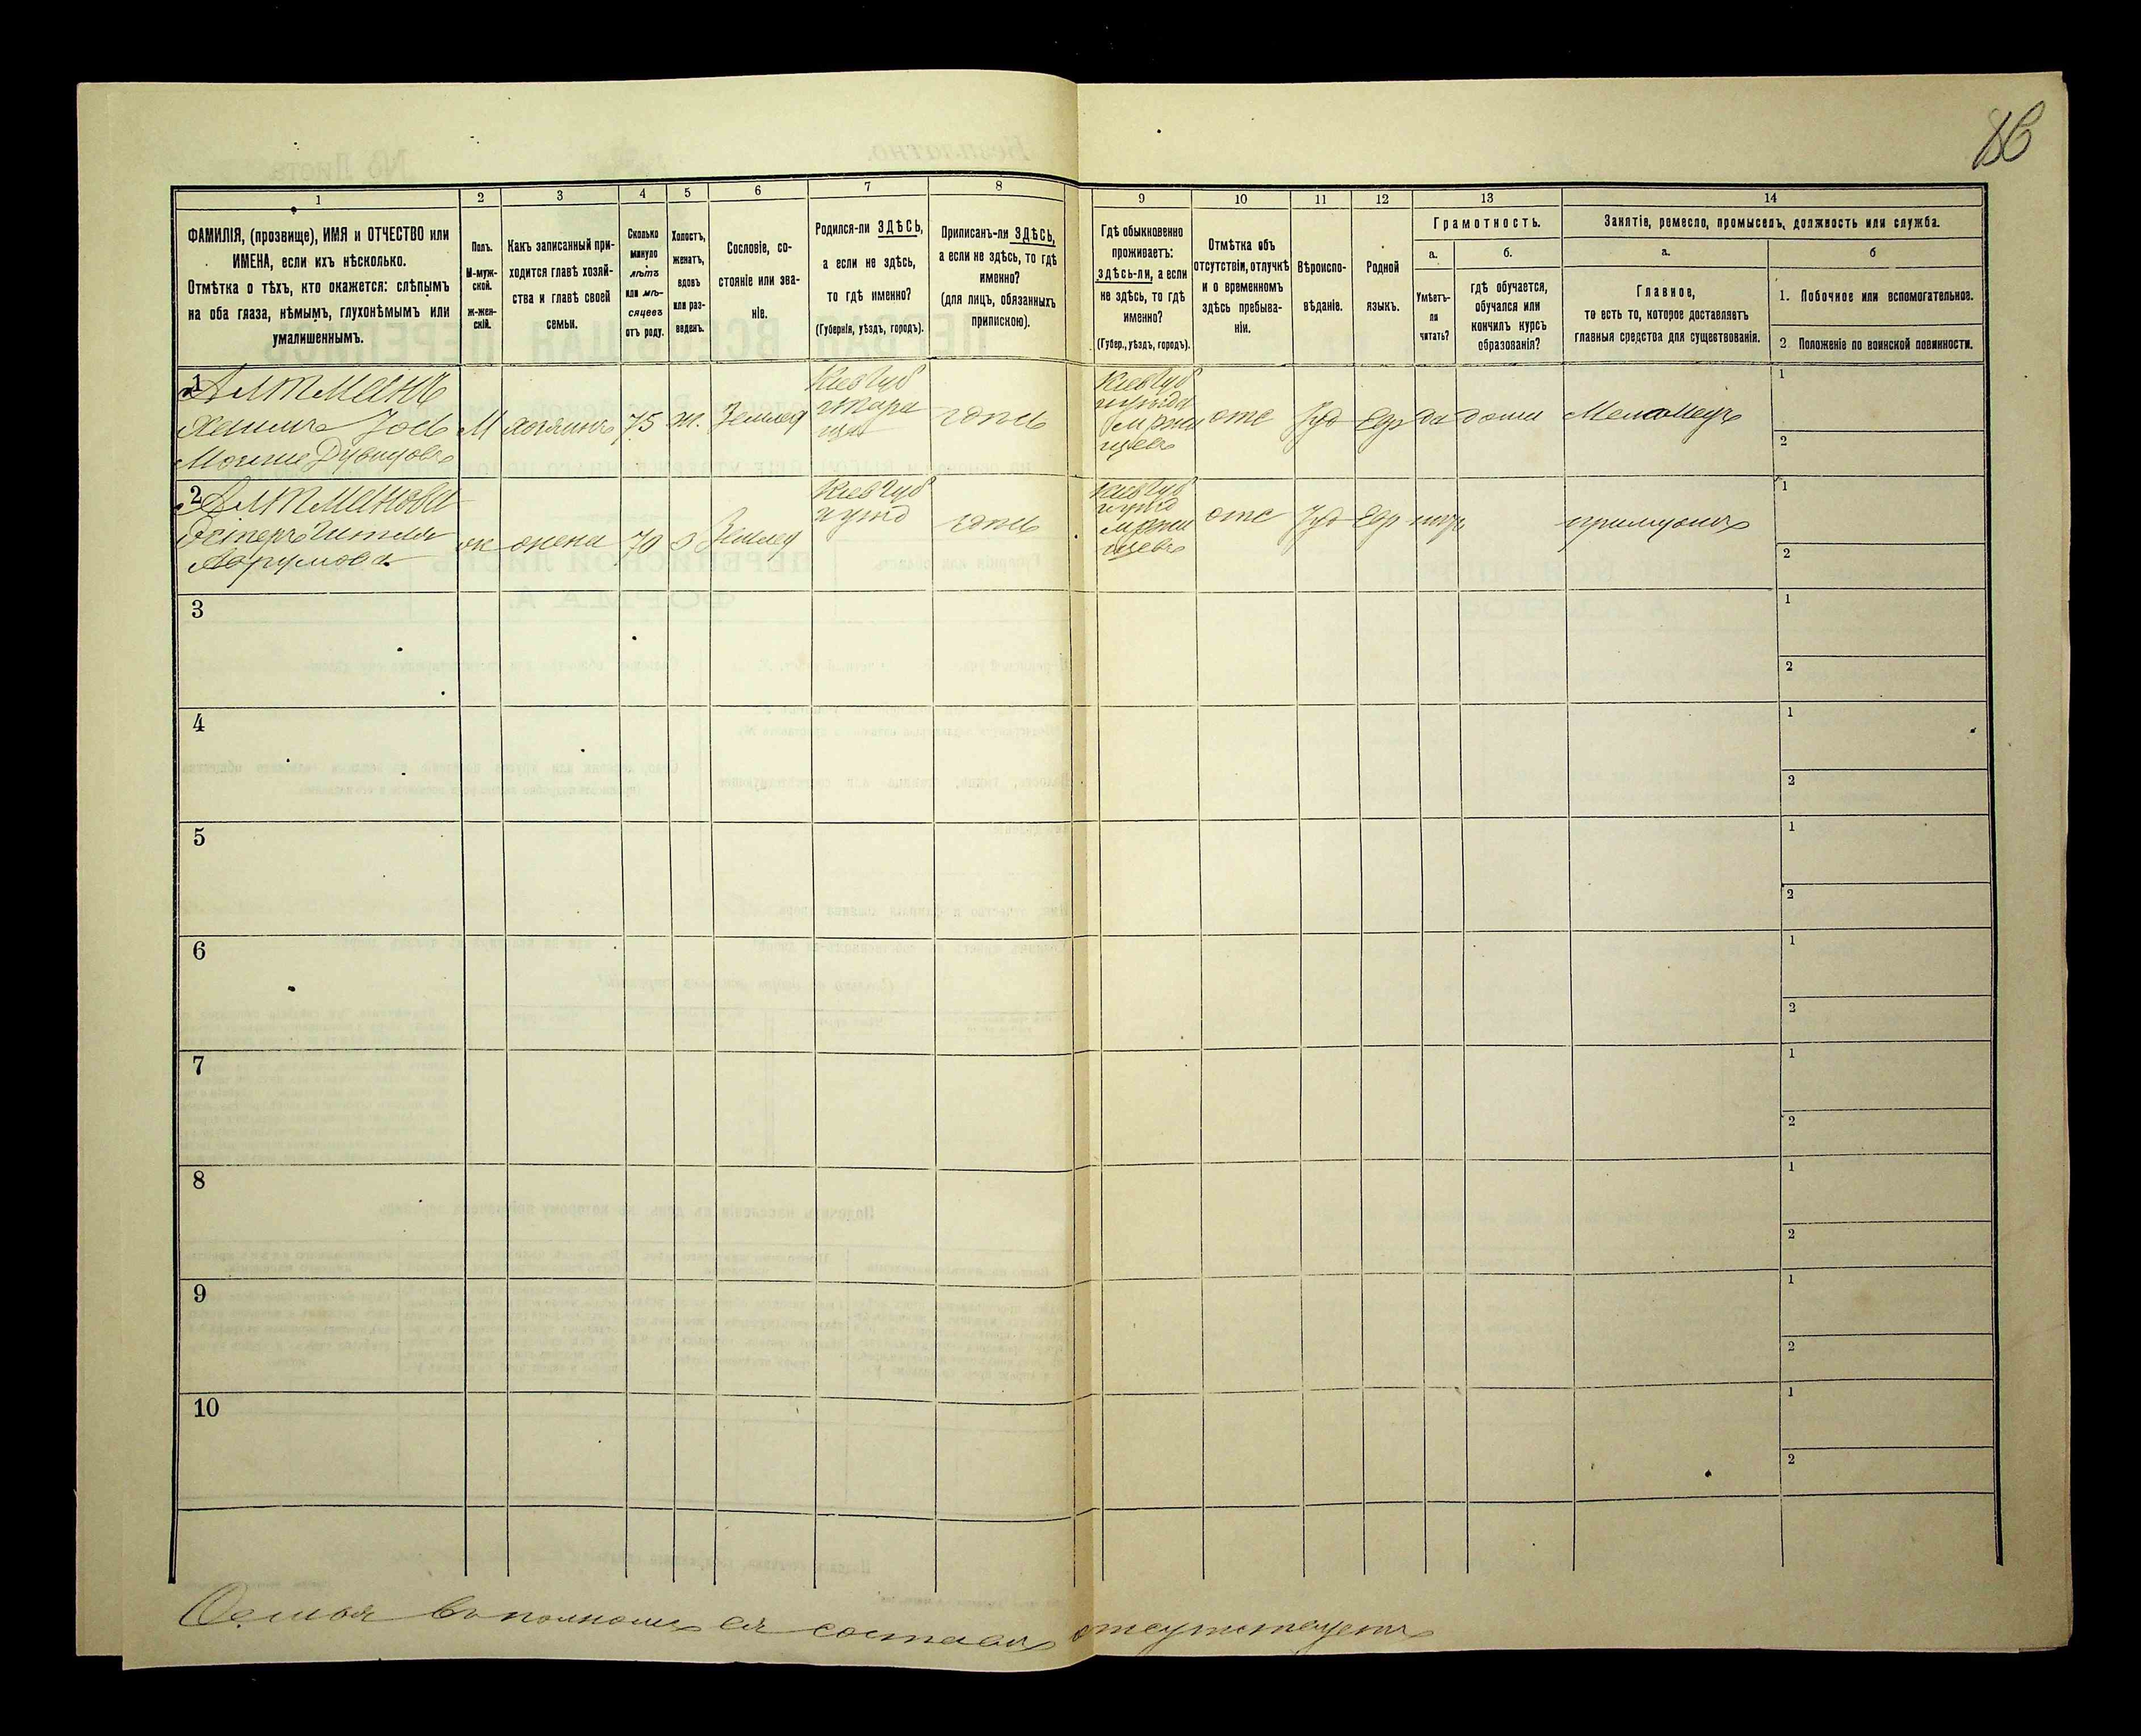 86
1
ФАМИЛІЯ, (прозвище), ИМЯ и ОТЧЕСТВО или
ИМЕНА, если ихъ нѣсколько.
Отмѣтка о тѣхъ, кто окажется: слѣпымъ
на оба глаза, нѣмымъ, глухонѣмымъ или
умалишеннымъ.
2
Полъ.
М-муж-
ской.
ж-жен-
скій.
3
Какъ записанный при-
ходится главѣ хозяй-
ства и главѣ своей
семьи.
4
Сколько
минуло
лѣтъ
или мѣ-
сяцевъ
отъ роду.
5
Холостъ,
женатъ,
вдовъ
или раз-
веденъ.
6
Сословіе, со-
стояніе или зва-
ніе.
7
Родился-ли ЗДѢСЬ,
а если не здѣсь,
то гдѣ именно?
(Губернія, уѣздъ, городъ).
8
Приписанъ-ли ЗДѢСЬ,
а если не здѣсь, то гдѣ
именно?
(для лицъ, обязанныхъ
припискою).
9
Гдѣ обыкновенно
проживаетъ:
здѣсь-ли, а если
не здѣсь, то гдѣ
именно?
(Губер., уѣздъ, городъ).
10
Отмѣтка объ
отсутствіи, отлучкѣ
и о временномъ
здѣсь пребыва-
ніи.
11
Вѣроиспо-
вѣданіе.
12
Родной
языкъ.
13
Грамотность.
а.
Умѣетъ-
ли
читать?
б.
гдѣ обучается,
обучался или
кончилъ курсъ
образованія?
14
Занятіе, ремесло, промыселъ, должность или служба.
а.
Главное,
то есть то, которое доставляетъ
главныя средства для существованія.
б
1. Побочное или вспомогательное.
2 Положеніе по воинской повинности.
1
Алтманъ
Іось
М
хозяинъ
75
ж.
Землед
Кіев губ
тара
ща
здѣсь
Кіев губ
отс
Іуд
Евр
да
дома
Меламедъ
1
2
2
Алтманова
Эстеръ Гитля
Аврумова
ж
жена
70
з
Землед
Кіев губ
здѣсь
Кіев губ
отс
Іуд
Евр
1
2
3
1
2
4
1
2
5
1
2
6
1
2
7
1
2
8
1
2
9
1
2
10
1
2
Семья въ полномъ ея составѣ отсутствуетъ